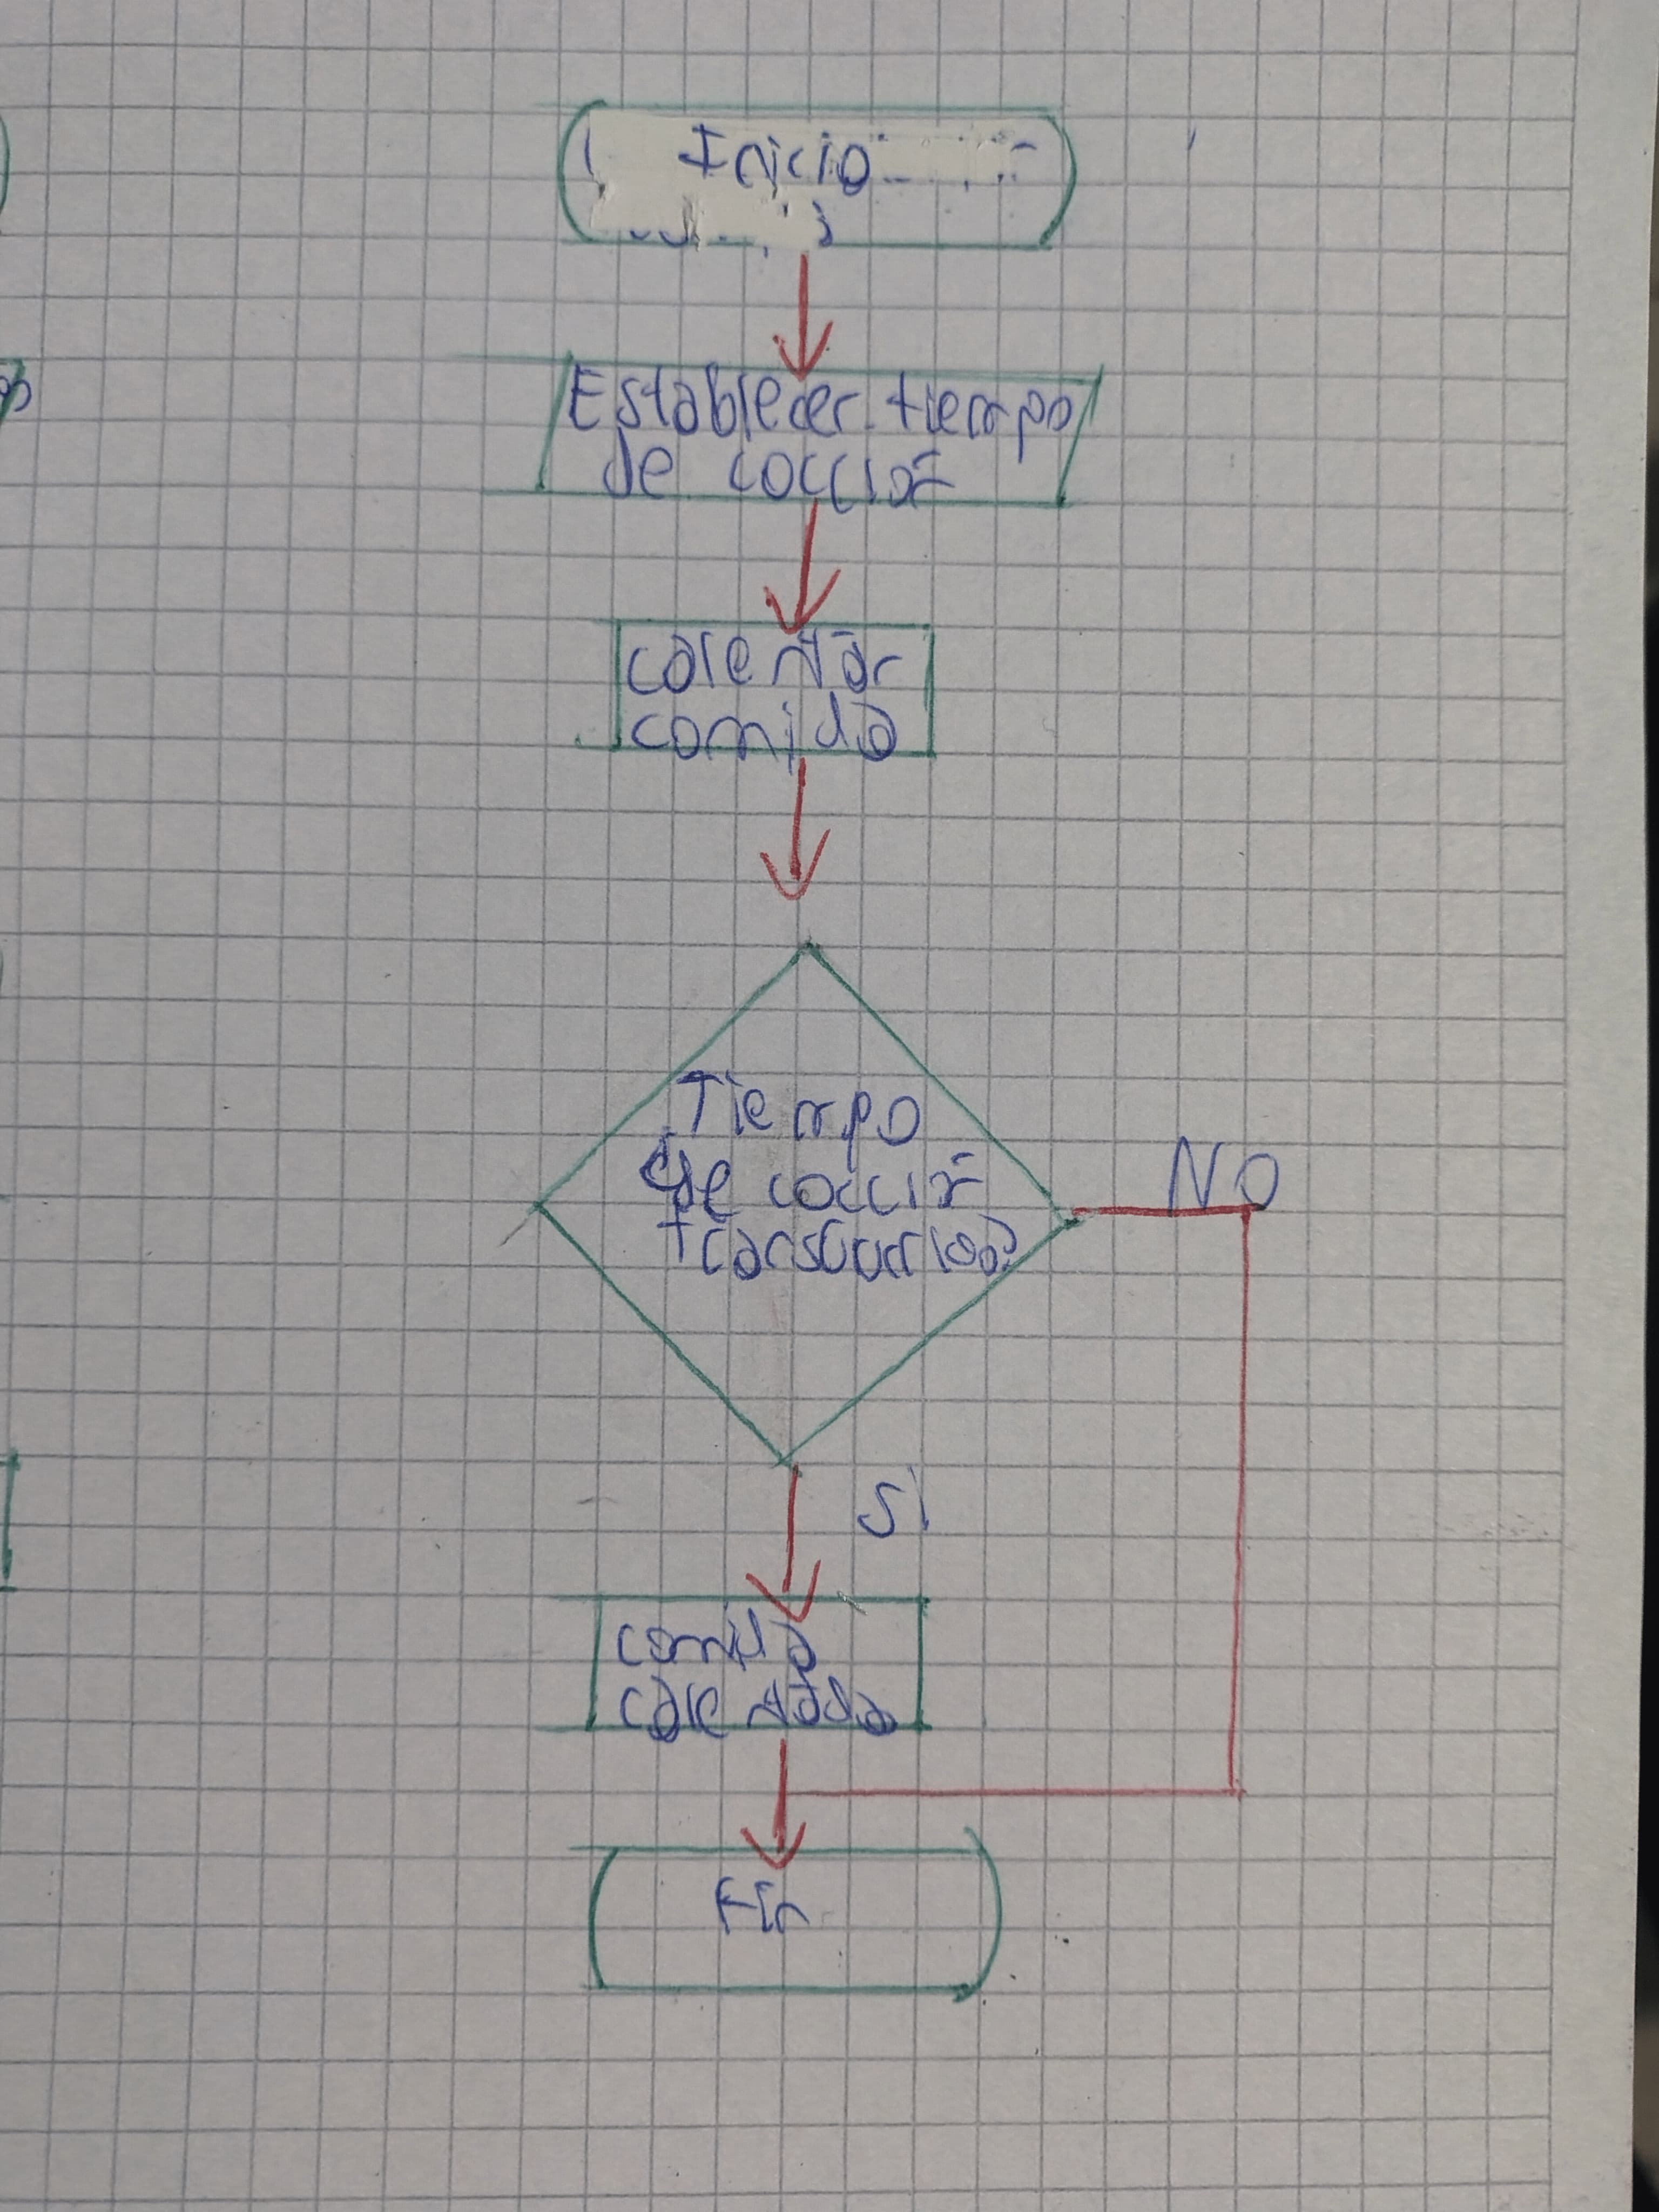 Inicio
Establecer tiempo
de cocción
calentar
comida
Tiempo
de cocción
transcurrido?
NO
Si
comida
calentada
Fin